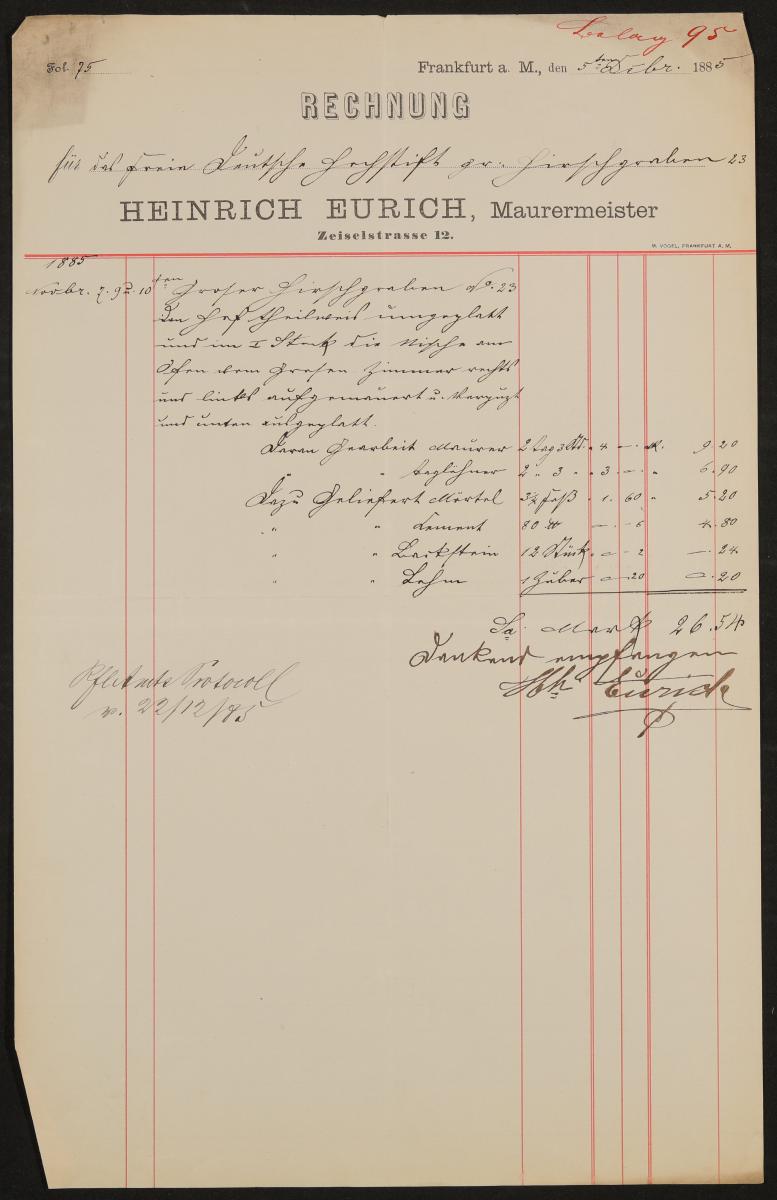 Belag 95
Fol. 75
Frankfurt a. M., den 5ten Dcbr. 1885
RECHNUNG
für das Freie Deutsche Hochstift gr. Hirschgraben 23
HEINRICH EURICH, Maurermeister
Zeiselstrasse 12.
M. VOGEL, FRANKFURT A. M.
1885
Novbr. 7. 9 u. 10ten Groser Hirschgraben No. 23
den Hof theilweis umgeplatt
und im I Stock die Nische am
Ofen dem Grosen Zimmer rechts
und links aufgemauert u. Verpuzt
und unten ausgeplatt.
Daran Gearbeit Maurer 2 tag 3 Std. " 4 — M. 9.20
" " taglöhner 2 " 3 " " 3 — " 6.90
Dazu Geliefert Mörtel 3¼ Faß " 1. 60 " 5.20
" " Cement 80 ℔ — - 6 4.80
" " Backstein 12 Stück — 2 —. 24
" " Lehm 1 Züber — 20 —. 20
Sa. Mark 26.54
Dankend empfangen
Hch Eurich
Protocoll
v. 22/12/85